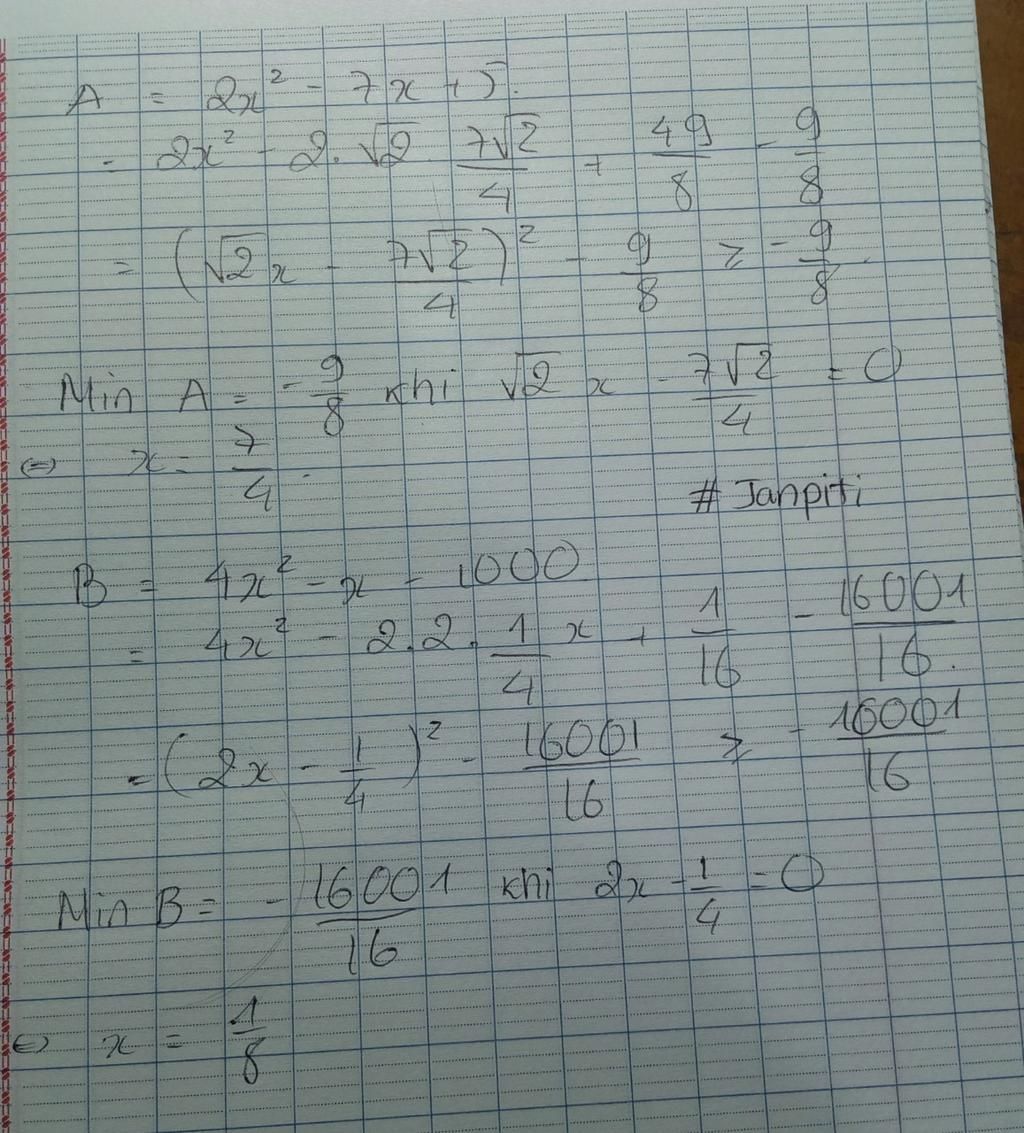 A = 2x² - 7x + 5.
= 2x² - 2.√2 7√2/4 + 49/8 - 9/8
= (√2x - 7√2/4)² - 9/8 ≥ -9/8.
Min A = -9/8 khi √2 x - 7√2/4 = 0
⇔ x = 7/4.
# Janpiti
B = 4x² - x - 1000
= 4x² - 2.2.1/4 x + 1/16 - 16001/16.
= (2x - 1/4)² - 16001/16 ≥ -16001/16
Min B = -16001/16 khi 2x - 1/4 = 0
⇔ x = 1/8